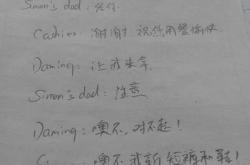 Simon's dad: 没有
Cashier: 谢谢 祝你用餐愉快
Daming: 让我来拿
Simon's dad: 注意
Daming: 噢不, 对不起!
噢不 我新 短裤和鞋!